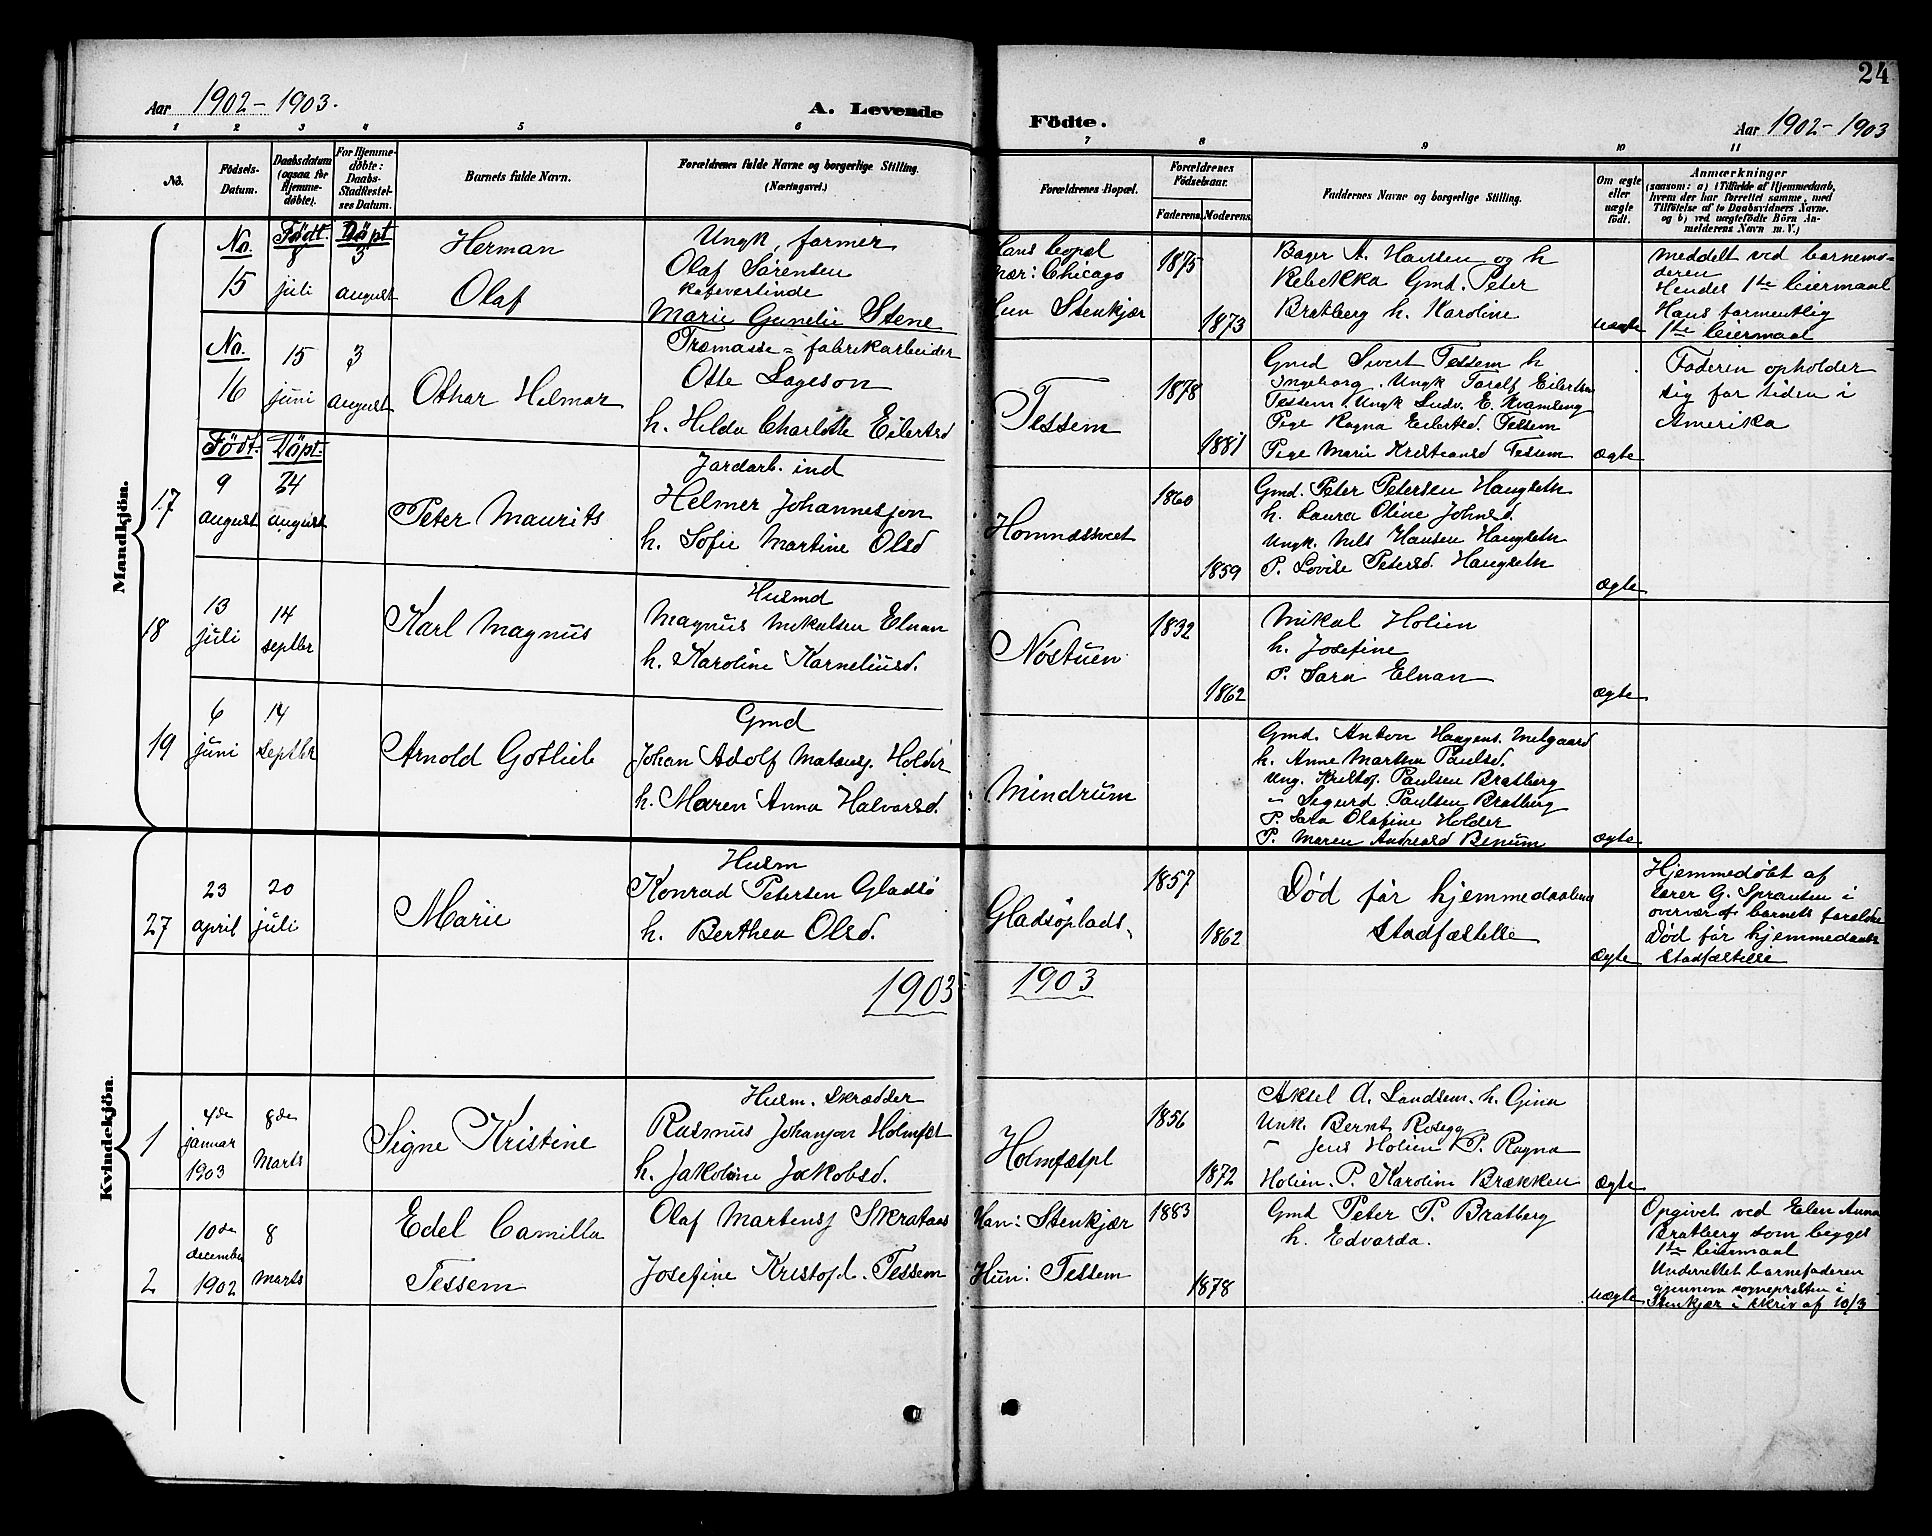 24
Aar 1902-1903.
A. Levende
Fødte.
Aar 1902-1903
1 2 3 4 5 6
7 8 9 10 11
No.
Fødsels-Datum.
Daabsdatum (ogsaa for Hjemmedøbte).
For Hjemmedøbte: Daabs-Stadfestelses Datum.
Barnets fulde Navn.
Forældrenes fulde Navne og borgerlige Stilling. (Næringsvei.)
Forældrenes Bopæl.
Forældrenes Fødselsaar.
Faderens. Moderens.
Faddernes Navne og borgerlige Stilling.
Om ægte eller uægte født.
Anmærkninger
(saasom: a) i Tilfælde af Hjemmedaab,
hvem der har forrettet samme, med
Tilføielse af to Daabsvidners Navne.
og b) ved uægtefødte Børn An-
melderens Navn m. V.)
Mandkjön.
No. Født. Døpt
15 juli 3 august
Herman
Olaf
Ungk, farmer
Olaf Sørensen
Kafevertinde
Marie Gunelie Stene
Hans bopæl
er: Chicago
Hun Stenkjær
1875
1873
Bager A. Hansen og h
Rebekka Gmd. Peter
Bratberg h. Karoline
uægte
Meddelt ved barnemo-
deren
Hendes 1te leiermaal
Hans formentlig
1te leiermaal
No. 16
15 juni
3 august
Othar Helmar
Træmasse-fabrikarbeider
Otte Lageson
h. Hilda Charlotte Eilertsd
Tessem
1878
1881
Gmd Sivert Tessem h
Ingeborg. Ungk Toralf Eilertsen
Tessem Ungk Ludv. E. Kvamleng
Pige Ragna Eilertsd. Tessem
Pige Marie Kristiansd Tessem
ægte
Faderen opholder
sig for tiden i
Amerika
Født. Døpt.
17
9 august
24 august
Peter Maurits
Jordarb. ind
Helmer Johannesson
h. Sofie Martine Olsd
1860
1859
Gmd. Peter Petersen Haugseth
h. Laura Oline Johnsd.
Ungk. Nils Hansen Haugseth
P. Lovise Petersd. Haugseth
ægte
18
13 juli
14 septbr
Karl Magnus
Husmd
Magnus Mikalsen Elnan
h. Karoline Korneliusd.
Nøstuen
1832
1862
Mikal Holien
h. Josefine
P. Sara Elnan
ægte
19
6 juni
14 septbr
Arnold Gotlieb
Gmd
Johan Adolf Matausj. Holder
h. Maren Anna Halvorsd.
Mindrum
Gmd. Anton Haagens. Melgaard
h. Anne Martha Paulsd.
Ung. Kristof. Paulsen Bratberg
" Sigurd Paulsen Bratberg
P. Sara Olafine Holder
P. Maren Andreasd Benum
ægte
Kvindekjön.
27
23 april
20 juli
Marie
Husm
Konrad Petersen Gladsø
h. Berthea Olsd.
Gladsøplads
1857
1862
Død før hjemmedaabens
Stadfæstelse
ægte
Hjemmedøbt af
lærer G. Sprauten i
overvær af barnets forældre
Død før hjemmedaabs
Stadfæstelse
1903
1903
1
4de januar 1903
8de Marts
Signe Kristine
Husm. Skrædder
Rasmus Johansen Holmfæt
h. Jakobine Jakobsd.
Holmfætpl
1856
1872
Aksel A. Landsem. h. Gina
Unk. Bernt Rosegg
" Jens Holien P. Ragna
Holien. P. Karoline Brækken
ægte
2
10de december 1902
8 Marts
Edel Camilla
Tessem
Olaf Martensj Skrataas
Josefine Kristofd. Tessem
Han: Stenkjær
Hun: Tessem
1883
1878
Gmd Peter P. Bratberg
h. Edvarda.
uægte
Opgivet ved Elen Anna
Bratberg som begges
1te leiermaal
Underrettet barnefaderen
gjennem sogneprsten i
Stenkjær i skriv af 10/3